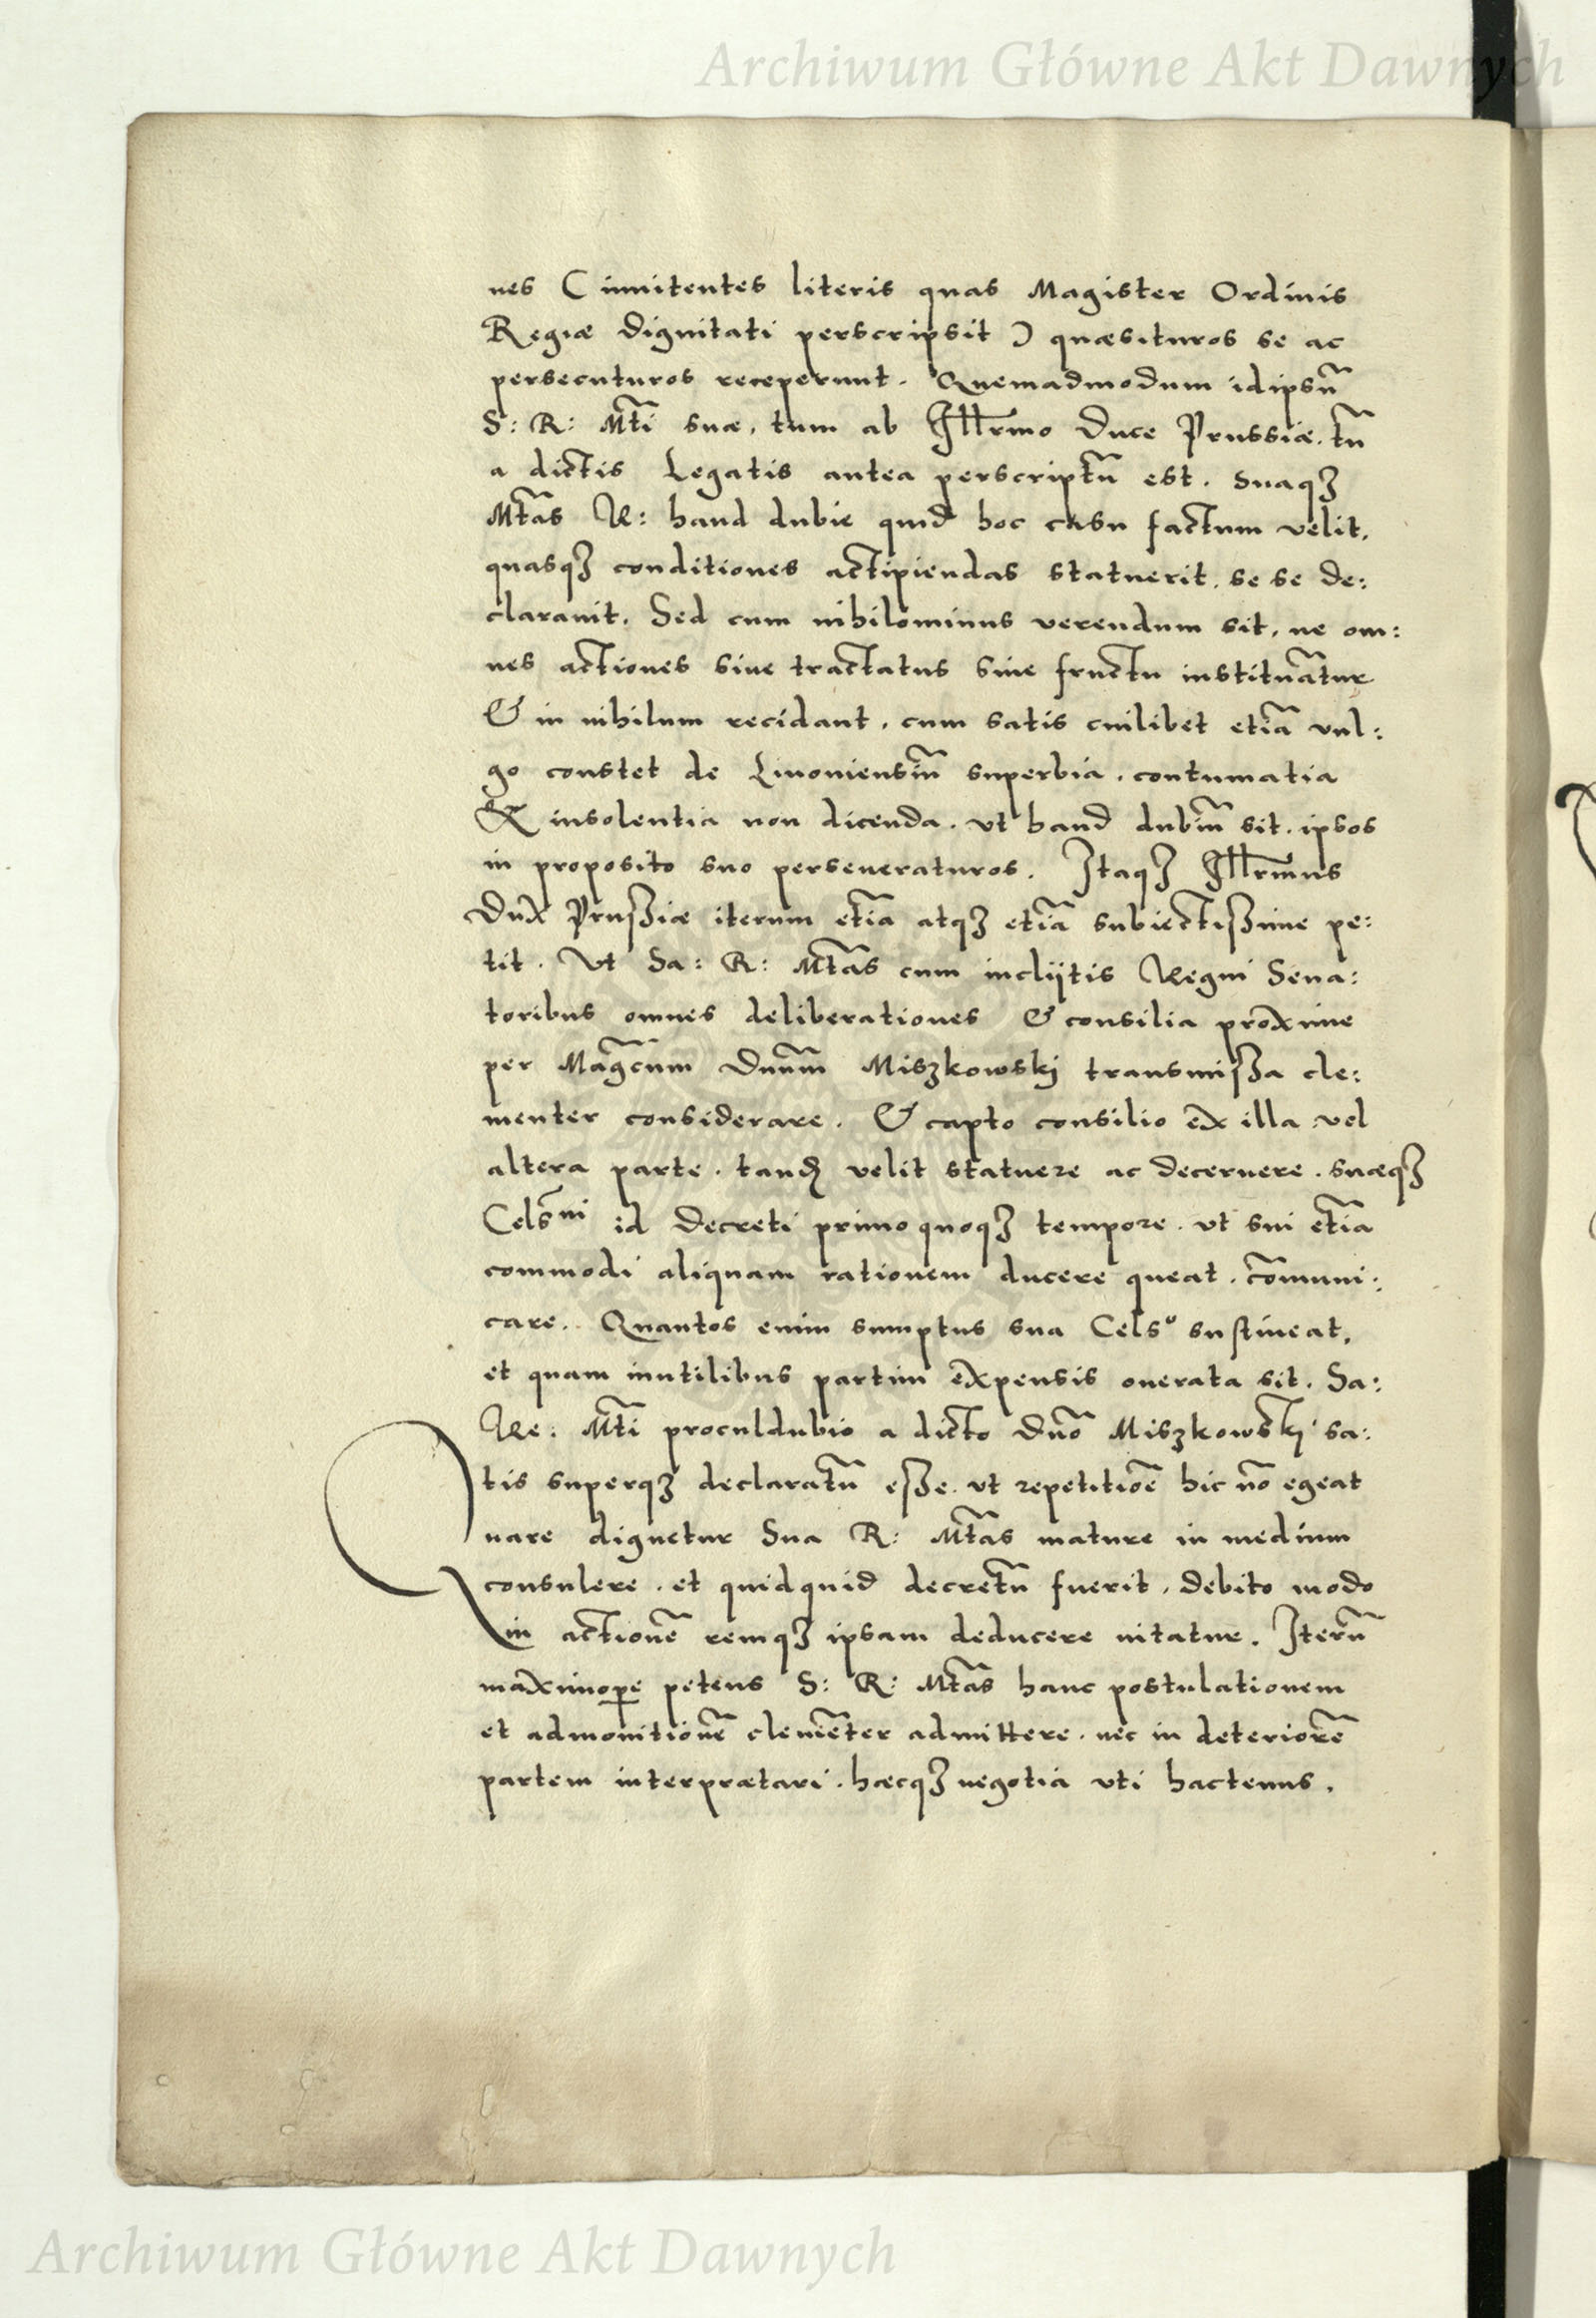 Archiwum Główne Akt Dawnych
nes (innitentes literis quas Magister Ordinis
Regiæ dignitati perscripsit) quæsituros se ac
persecuturos receperunt. Quemadmodum idipsũ
S: R: Mtĩ suæ, tum ab Illrmo Duce Prussiæ, tũ
a dictis Legatis antea perscriptũ est. suaqꝫ
Mtãs R: haud dubie quid hoc casu factum velit,
quasqꝫ conditiones actipiendas statuerit, se se de:
clarauit. Sed cum nihilominus verendum sit, ne om:
nes actiones siue tractatus sine fructu instituãtur
& in nihilum recidant, cum satis cuilibet etiã vul:
go constet de Liuoniensiũ superbia, contumatia
& insolentia non dicenda. ut haud dubiũ sit, ipsos
in proposito suo perseueraturos. Itaqꝫ Illrmus
Dux Prussiæ iterum etiã atqꝫ etiã subiectissime pe:
tit. Ut Sa: R: Mtãs cum inclijtis Regni Sena:
toribus omnes deliberationes & consilia proxime
per Magcum Dnum Miszkowskj transmissa cle:
menter considerare. & capto consilio ex illa vel
altera parte, tandẽ velit statuere ac decernere. suæqꝫ
Celsni id decreti primo quoqꝫ tempore. ut sui etiã
commodi aliquam rationem ducere queat, cõmuni:
care. Quantos enim sumptus sua Celso sustineat,
et quam inutilibus partim expensis onerata sit. Sa:
Re: Mtĩ proculdubio a dicto Dno Miszkowskj sa:
tis superqꝫ declaratũ esse. ut repetitiõe hic nõ egeat
Quare dignetur Sua R: Mtãs mature in medium
consulere. et quidquid decretũ fuerit, debito modo
in actionẽ remqꝫ ipsam deducere nitatur. Iterũ
maximope petens S: R: Mtãs hanc postulationem
et admonitionẽ clemẽter admittere. nec in deteriorẽ
partem interprætari. hæcqꝫ negotia uti hactenus,
Archiwum Główne Akt Dawnych